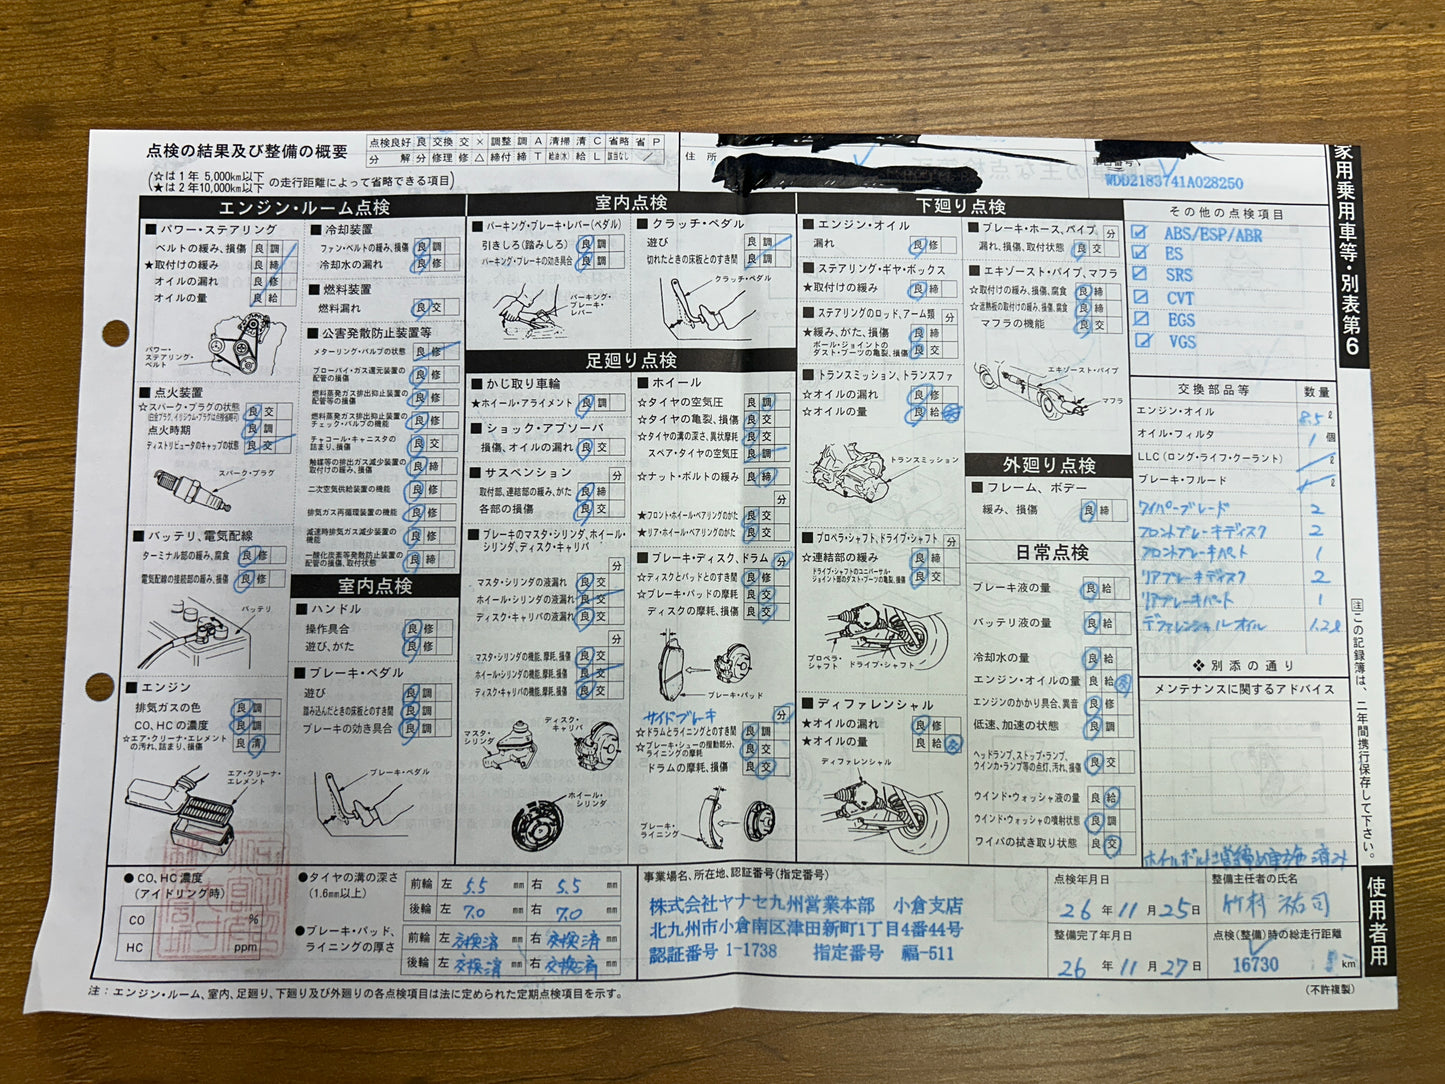 点検の結果及び整備の概要
点検良好 良 交換 交 × 調整 調 A 清掃 清 C 省略 省 P
分解 分 修理 修 △ 締付 締 T 給油(水) 給 L 該当なし ／
(☆は1年 5,000km以下
★は2年10,000km以下 の走行距離によって省略できる項目)
住所
WDD2183741A028250
家用乗用車等・別表第6
エンジン・ルーム点検
■ パワー・ステアリング
ベルトの緩み、損傷 良 調
★取付けの緩み 良 締
オイルの漏れ 良 修
オイルの量 良 給
パワー・ステアリング・ベルト
■ 点火装置
☆スパーク・プラグの状態 良 交
(白金プラグ、イリジウム・プラグは点検省略可)
点火時期 良 調
ディストリビュータのキャップの状態 良 交
スパーク・プラグ
■ バッテリ、電気配線
ターミナル部の緩み、腐食 良 修
電気配線の接続部の緩み、損傷 良 修
バッテリ
■ エンジン
排気ガスの色 良 調
CO、HCの濃度 良 調
☆エア・クリーナ・エレメントの汚れ、詰まり、損傷 良 清
エア・クリーナ・エレメント
■ 冷却装置
ファン・ベルトの緩み、損傷 良 調
冷却水の漏れ 良 修
■ 燃料装置
燃料漏れ 良 交
■ 公害発散防止装置等
メターリング・バルブの状態 良 修
ブローバイ・ガス還元装置の配管の損傷 良 修
燃料蒸発ガス排出抑止装置の配管等の損傷 良 修
燃料蒸発ガス排出抑止装置のチェック・バルブの機能 良 修
チャコール・キャニスタの詰まり、損傷 良 交
触媒等の排出ガス減少装置の取付けの緩み、損傷 良 締
二次空気供給装置の機能 良 修
排気ガス再循環装置の機能 良 修
減速時排気ガス減少装置の機能 良 修
一酸化炭素等発散防止装置の配管の損傷、取付状態 良 締
室内点検
■ ハンドル
操作具合 良 修
遊び、がた 良 修
■ ブレーキ・ペダル
遊び 良 調
踏み込んだときの床板とのすき間 良 調
ブレーキの効き具合 良 調
ブレーキ・ペダル
室内点検
■ パーキング・ブレーキ・レバー(ペダル)
引きしろ(踏みしろ) 良 調
パーキング・ブレーキの効き具合 良 調
パーキング・ブレーキ・レバー
■ クラッチ・ペダル
遊び 良 調
切れたときの床板とのすき間 良 調
クラッチ・ペダル
足廻り点検
■ かじ取り車輪
★ホイール・アライメント 良 調
■ ショック・アブソーバ
損傷、オイルの漏れ 良 交
■ サスペンション 分
取付部、連結部の緩み、がた 良 締
各部の損傷 良 交
■ ブレーキのマスタ・シリンダ、ホイール・シリンダ、ディスク・キャリパ
マスタ・シリンダの液漏れ 良 交
ホイール・シリンダの液漏れ 良 交
ディスク・キャリパの液漏れ 良 交
分
マスタ・シリンダの機能、摩耗、損傷 良 交
ホイール・シリンダの機能、摩耗、損傷 良 交
ディスク・キャリパの機能、摩耗、損傷 良 交
マスタ・シリンダ
ディスク・キャリパ
ホイール・シリンダ
■ ホイール
☆タイヤの空気圧 良 調
☆タイヤの亀裂、損傷 良 交
☆タイヤの溝の深さ、異状摩耗 良 交
スペア・タイヤの空気圧 良 調
☆ナット・ボルトの緩み 良 締
分
★フロント・ホイール・ベアリングのがた 良 締
★リア・ホイール・ベアリングのがた 良 交
■ ブレーキ・ディスク、ドラム 分
☆ディスクとパッドとのすき間 良 修
☆ブレーキ・パッドの摩耗 良 交
ディスクの摩耗、損傷 良 交
ブレーキ・パッド
サイドブレーキ 分
☆ドラムとライニングとのすき間 良 調
☆ブレーキ・シューの摺動部分、ライニングの摩耗 良 交
ドラムの摩耗、損傷 良 交
ブレーキ・ライニング
下廻り点検
■ エンジン・オイル
漏れ 良 修
■ ステアリング・ギヤ・ボックス
★取付けの緩み 良 締
■ ステアリングのロッド、アーム類 分
★緩み、がた、損傷 良 締
ボール・ジョイントのダスト・ブーツの亀裂、損傷 良 交
■ トランスミッション、トランスファ
☆オイルの漏れ 良 修
☆オイルの量 良 給
トランスミッション
■ プロペラ・シャフト、ドライブ・シャフト 分
☆連結部の緩み 良 締
ドライブ・シャフトのユニバーサル・ジョイント部のダスト・ブーツの亀裂、損傷 良 交
プロペラ・シャフト ドライブ・シャフト
■ ディファレンシャル
★オイルの漏れ 良 修
★オイルの量 良 給
ディファレンシャル
■ ブレーキ・ホース、パイプ 分
漏れ、損傷、取付状態 良 交
■ エキゾースト・パイプ、マフラ
☆取付けの緩み、損傷、腐食 良 締
☆遮熱板の取付けの緩み、損傷、腐食 良 締
マフラの機能 良 交
エキゾースト・パイプ
マフラ
外廻り点検
■ フレーム、ボデー
緩み、損傷 良 締
日常点検
ブレーキ液の量 良 給
バッテリ液の量 良 給
冷却水の量 良 給
エンジン・オイルの量 良 給
エンジンのかかり具合、異音 良 修
低速、加速の状態 良 調
ヘッドランプ、ストップ・ランプ、ウインカ・ランプ等の点灯、汚れ、損傷 良 交
ウインド・ウォッシャ液の量 良 給
ウインド・ウォッシャの噴射状態 良 調
ワイパの拭き取り状態 良 交
その他の点検項目
ABS/ESP/ABR
ES
SRS
CVT
EGS
VGS
交換部品等 数量
エンジン・オイル 8.5 ℓ
オイル・フィルタ 1 個
LLC(ロング・ライフ・クーラント) ℓ
ブレーキ・フルード ℓ
ワイパーブレード 2
フロントブレーキディスク 2
フロントブレーキパット 1
リアブレーキディスク 2
リアブレーキパート 1
デファレンシャルオイル 1.2ℓ
❖ 別添の通り
メンテナンスに関するアドバイス
ホイールボルト増締め実施済み
注この記録簿は、二年間携行保存して下さい。
使用者用
● CO、HC濃度
(アイドリング時)
CO %
HC ppm
● タイヤの溝の深さ
(1.6mm以上)
前輪 左 5.5 mm 右 5.5 mm
後輪 左 7.0 mm 右 7.0 mm
● ブレーキ・パッド、ライニングの厚さ
前輪 左 交換済 mm 右 交換済 mm
後輪 左 交換済 mm 右 交換済 mm
事業場名、所在地、認証番号(指定番号)
株式会社ヤナセ九州営業本部 小倉支店
北九州市小倉南区津田新町1丁目4番44号
認証番号 1-1738 指定番号 福-511
点検年月日
26 年 11 月 25 日
整備完了年月日
26 年 11 月 27 日
整備主任者の氏名
竹村 祐司
点検(整備)時の総走行距離
16730 km
注：エンジン・ルーム、室内、足廻り、下廻り及び外廻りの各点検項目は法に定められた定期点検項目を示す。
(不許複製)